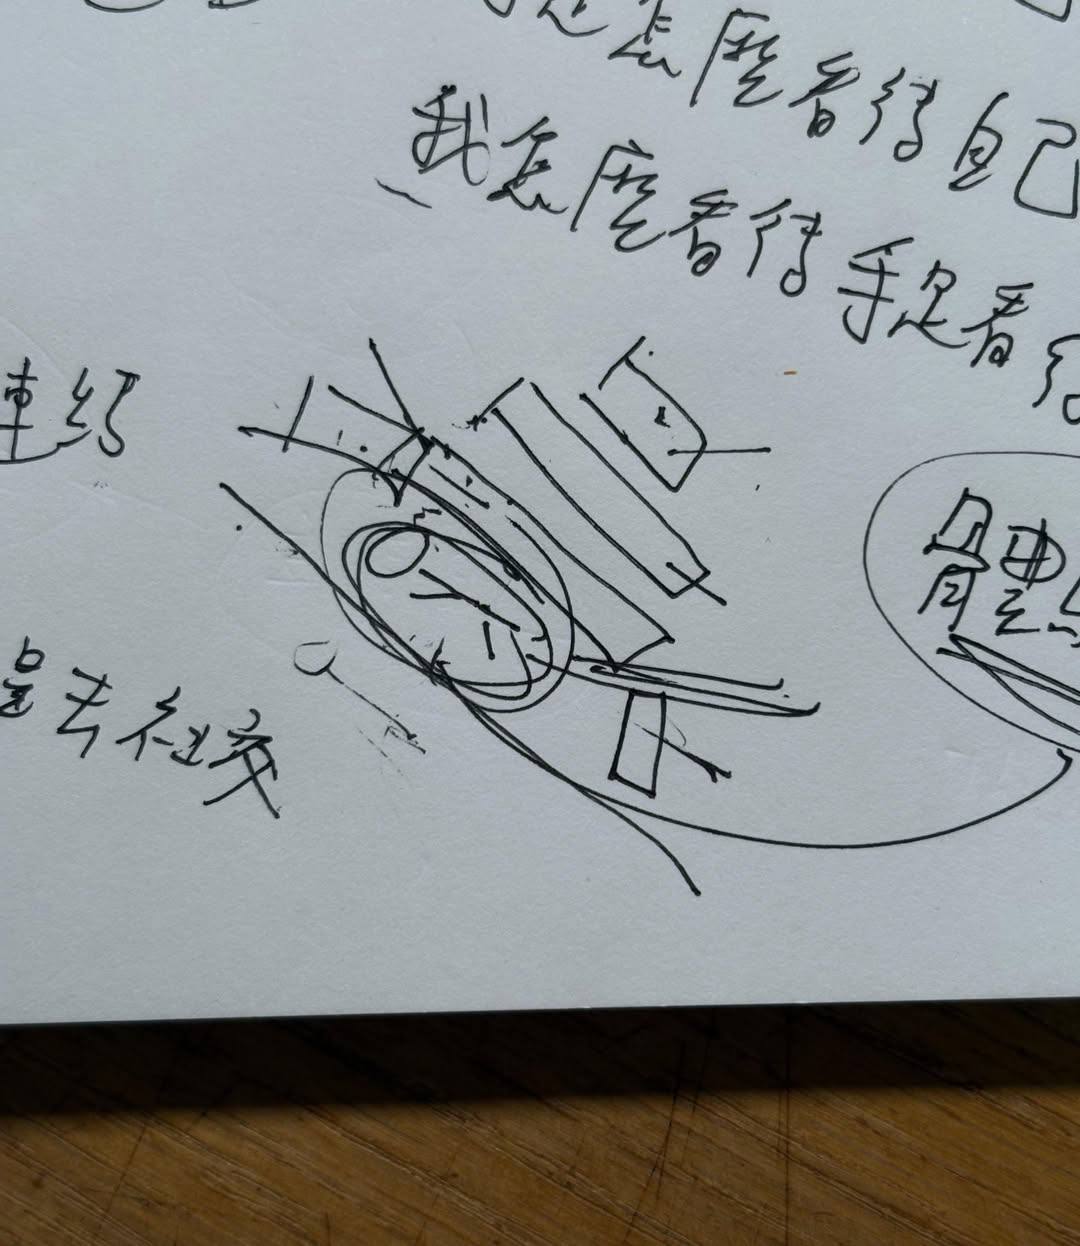 怎麼看待自己
我怎麼看待手足看待
連結
是去社交
體